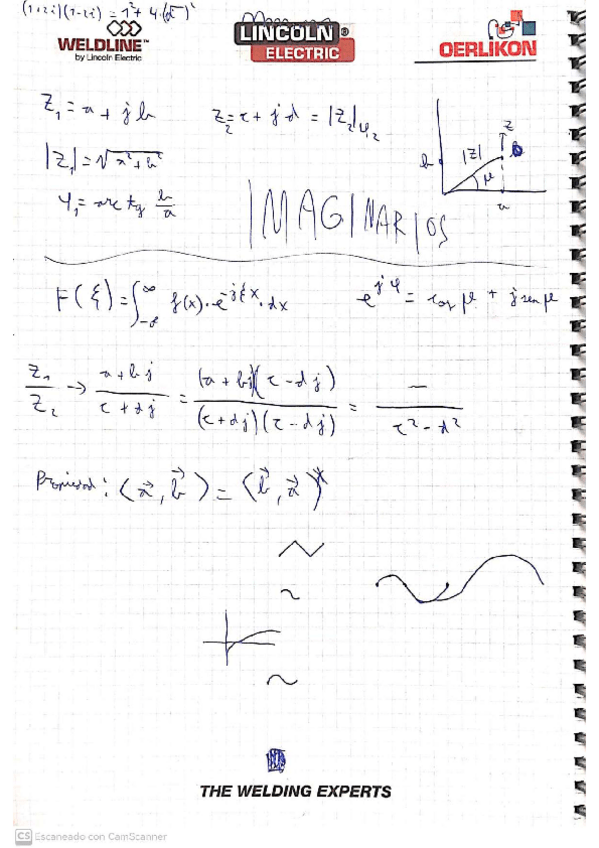 (1+2i)(1-2i) = 1²+4·(√ )²
WELDLINE™
by Lincoln Electric
LINCOLN®
ELECTRIC
OERLIKON
Z₁ = a + jb
Z₂ = c + jd = |Z₂|φ₂
|Z₁| = √a²+b²
φ₁ = arc tg b/a
b
|Z|
φ
z
a
IMAGINARIOS
F(ξ) = ∫_{-∞}^{∞} f(x)·e^{-jξx}·dx
e^{jφ} = cos φ + j sen φ
Z₁/Z₂ → (a+bj)/(c+dj) = (a+bj)(c-dj)/(c+dj)(c-dj) = —/(c²-d²)
Propiedad: ⟨a⃗, b⃗⟩ = ⟨b⃗, a⃗⟩*
THE WELDING EXPERTS
CS Escaneado con CamScanner